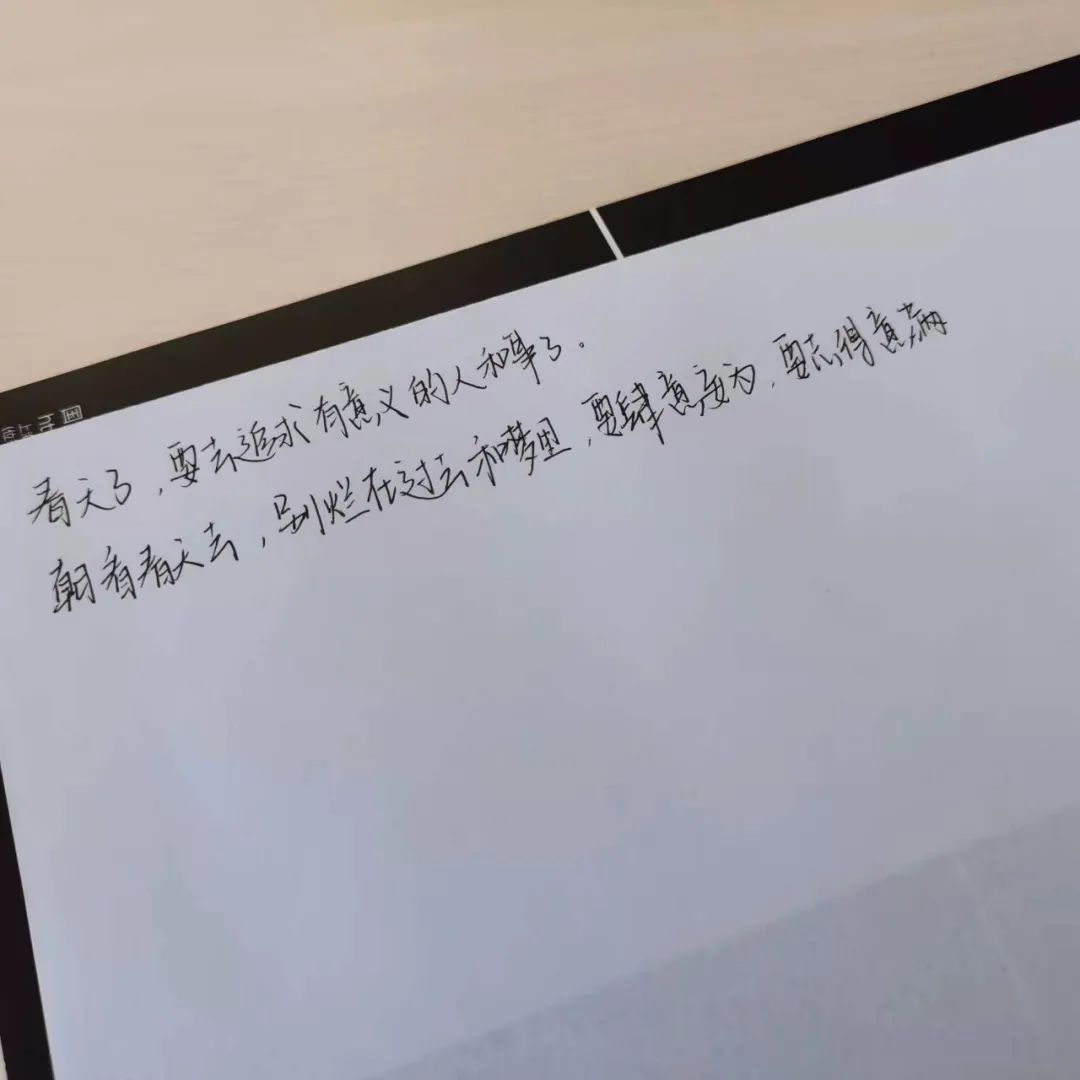 春天了，要去追求有意义的人和事了.
朝着春天去，别烂在过去和梦里，要肆意妄为，要志得意满